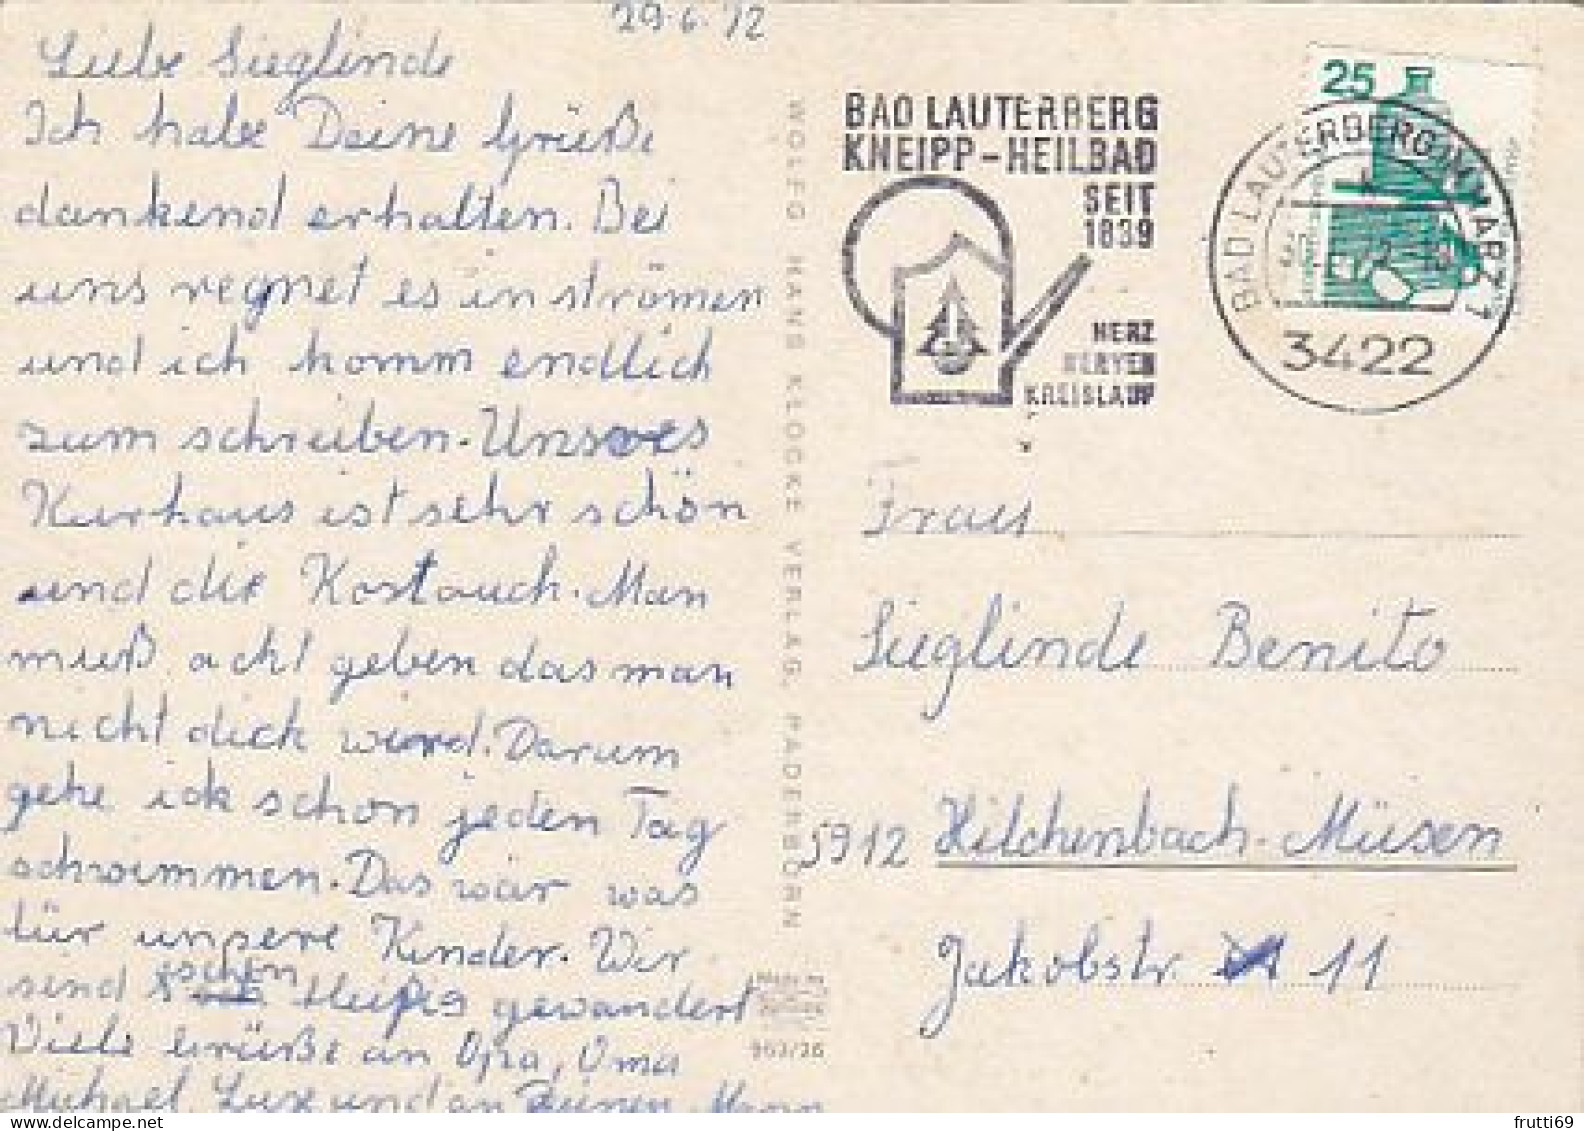 29.6.72
Liebe Sieglinde
Ich habe Deine Grüße
dankend erhalten. Bei
uns regnet es in strömen
und ich komm endlich
zum schreiben. Unsres
Kurhaus ist sehr schön
und die Kost auch. Man
muß acht geben das man
nicht dick wird. Darum
gehe ich schon jeden Tag
schwimmen. Das wär was
für unsere Kinder. Wir
sind schon fleißig gewandert
Viele Grüße an Opa, Oma
Michael, Luxe und an Deinen Mann
WOLFG HANS KLOCKE VERLAG, PADERBORN
963/26
BAD LAUTERBERG
KNEIPP-HEILBAD
SEIT
1839
HERZ
NERVEN
KREISLAUF
25
BAD LAUTERBERG IM HARZ 1
3422
Frau
Sieglinde Benito
5912 Hilchenbach-Müsen
Jakobstr 11
frutti69